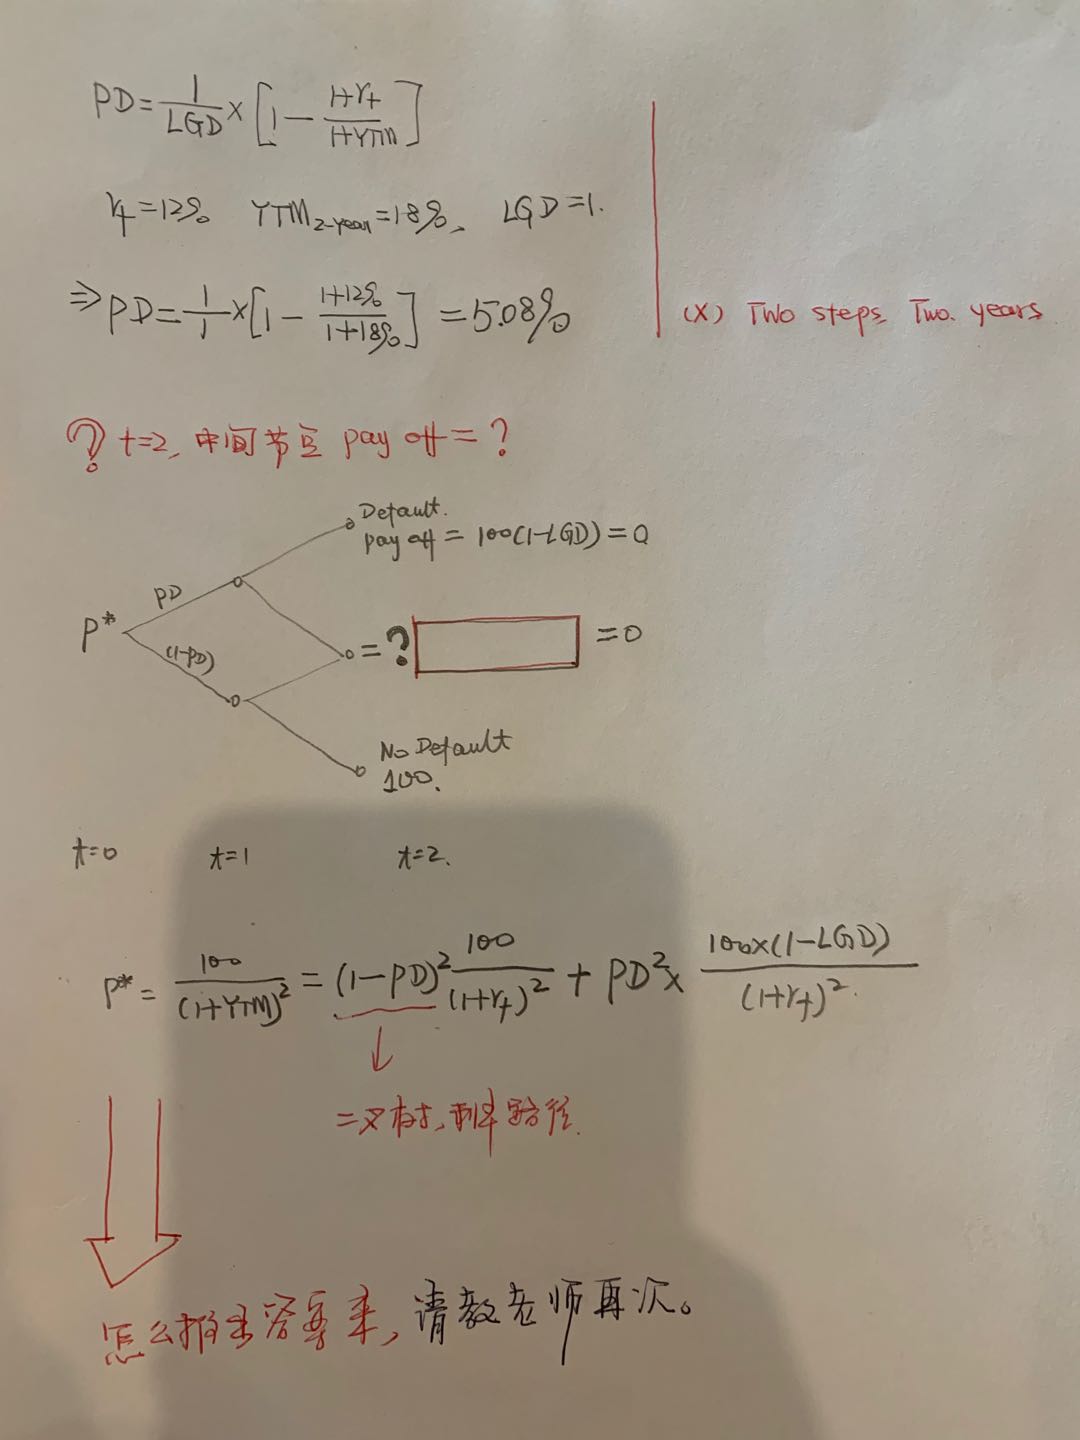 PD = 1/LGD × [1 − (1+rf)/(1+YTM)]
rf = 12% YTM2-year = 18%, LGD = 1.
⇒ PD = 1/1 × [1 − (1+12%)/(1+18%)] = 5.08%
(×) Two steps, Two. years
? t=2, 中间节点 pay off = ?
Default.
pay off = 100(1-LGD) = 0
PD
P*
(1-PD)
= ? = 0
No Default
100.
t=0 t=1 t=2.
P* = 100/(1+YTM)² = (1-PD)² 100/(1+rf)² + PD² × 100×(1-LGD)/(1+rf)².
二叉树, 利率路径.
怎么推出答案来, 请教老师再次。